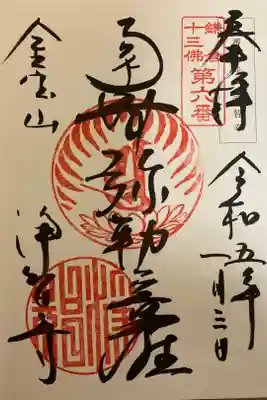 奉拝
鎌倉
十三佛
第六番
令和五年一月三日
南無弥勒菩薩
金宝山
浄智寺